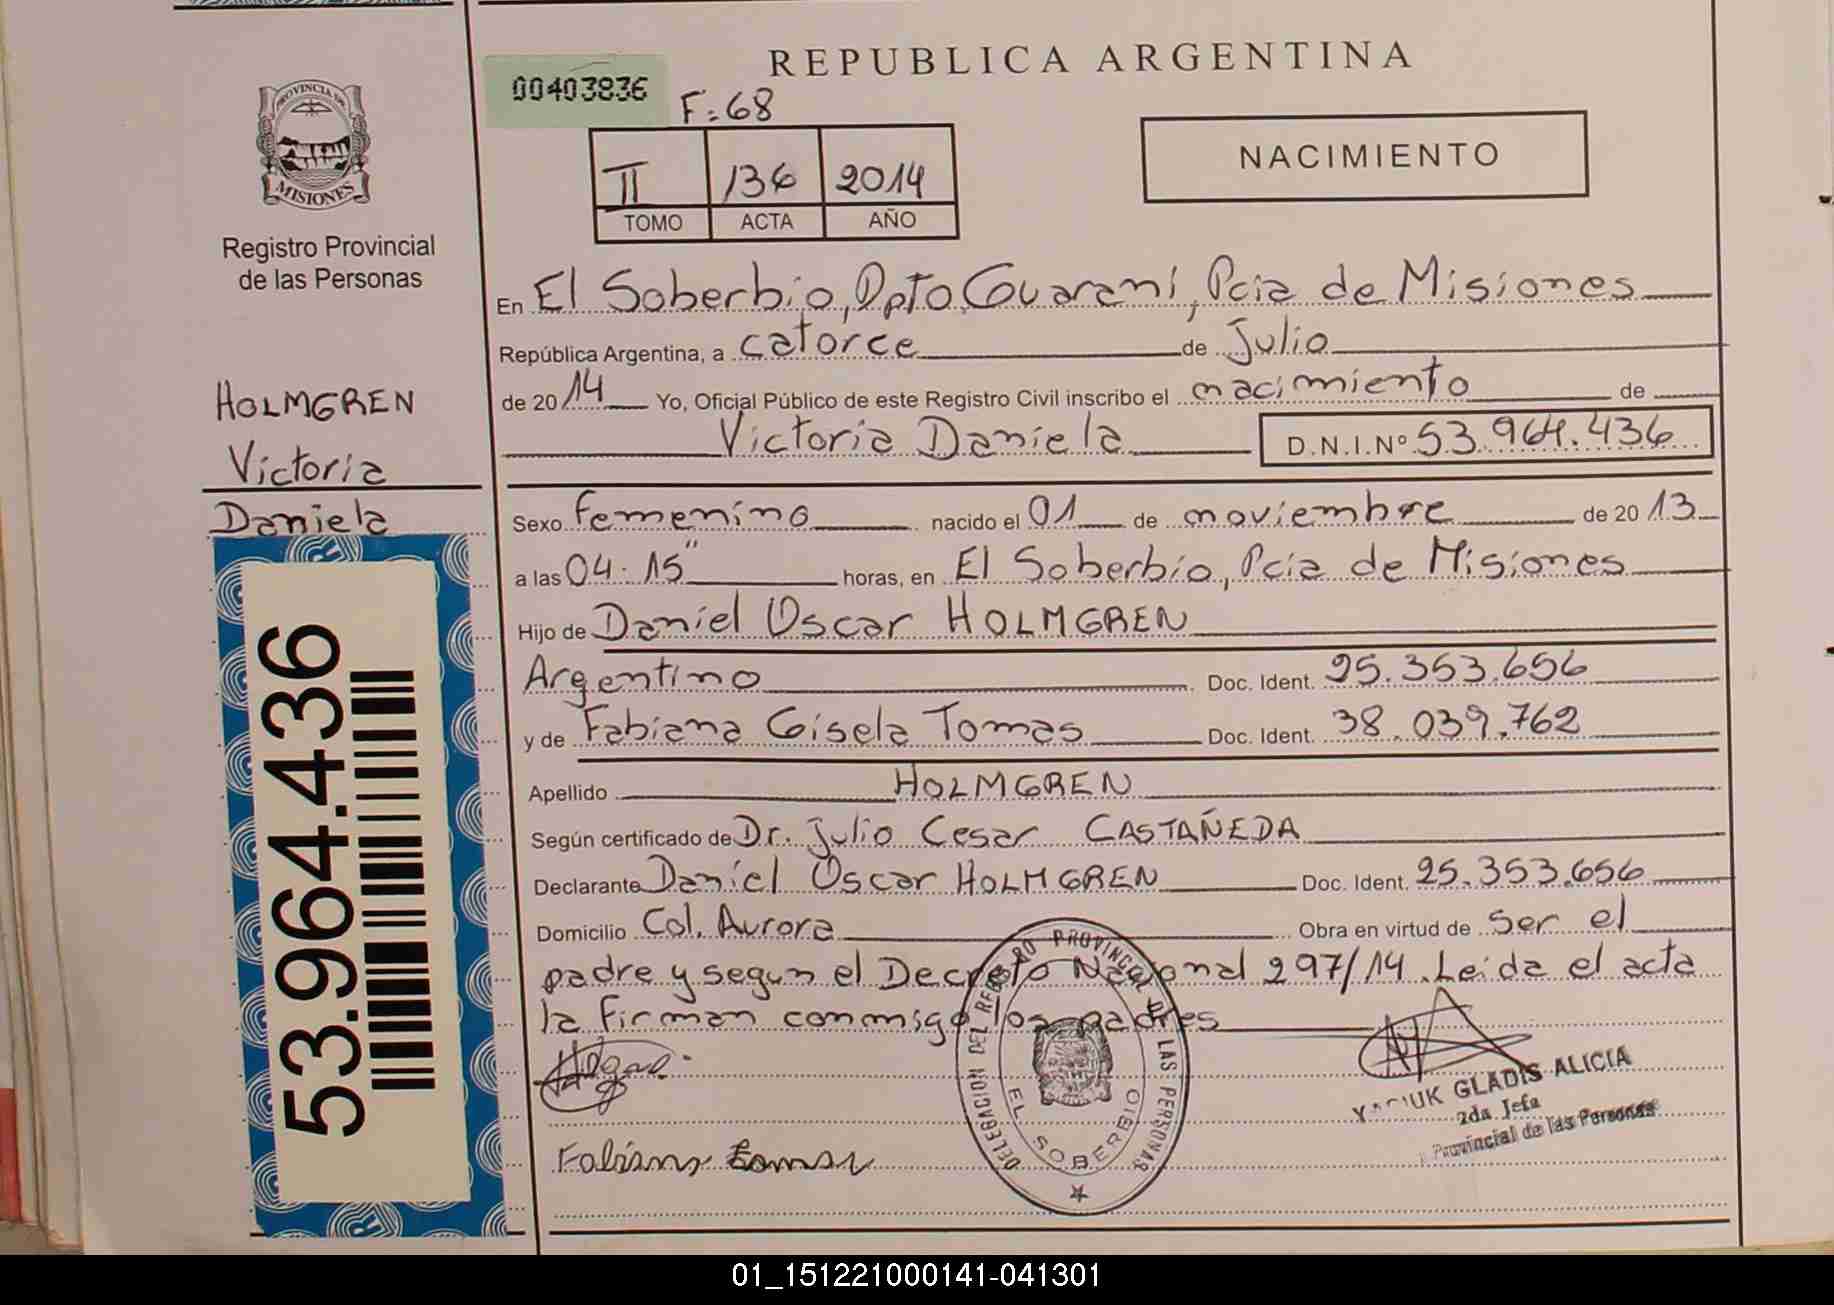 REPUBLICA ARGENTINA
00403836
F: 68
PROVINCIA DE
MISIONES
Registro Provincial
de las Personas
II 136 2014
TOMO ACTA AÑO
NACIMIENTO
HOLMGREN
Victoria
Daniela
53.964.436
En El Soberbio, Dpto Guaraní, Pcia de Misiones
República Argentina, a catorce de Julio
de 2014 Yo, Oficial Público de este Registro Civil inscribo el nacimiento de
Victoria Daniela D.N.I.Nº 53.964.436
Sexo Femenino nacido el 01 de noviembre de 2013
a las 04:15" horas, en El Soberbio, Pcia de Misiones
Hijo de Daniel Oscar HOLMGREN
Argentino Doc. Ident. 25.353.656
y de Fabiana Gisela Tomas Doc. Ident. 38.039.762
Apellido HOLMGREN
Según certificado de Dr. Julio Cesar CASTAÑEDA
Declarante Daniel Oscar HOLMGREN Doc. Ident. 25.353.656
Domicilio Col. Aurora Obra en virtud de ser el
padre y segun el Decreto Nacional 297/14. Leida el acta
la firman conmigo los padres
DELEGACION DEL REGISTRO PROVINCIAL DE LAS PERSONAS
EL SOBERBIO
GLADIS ALICIA
2da Jefa
Provincial de las Personas
Fabiana Tomas
01_151221000141-041301